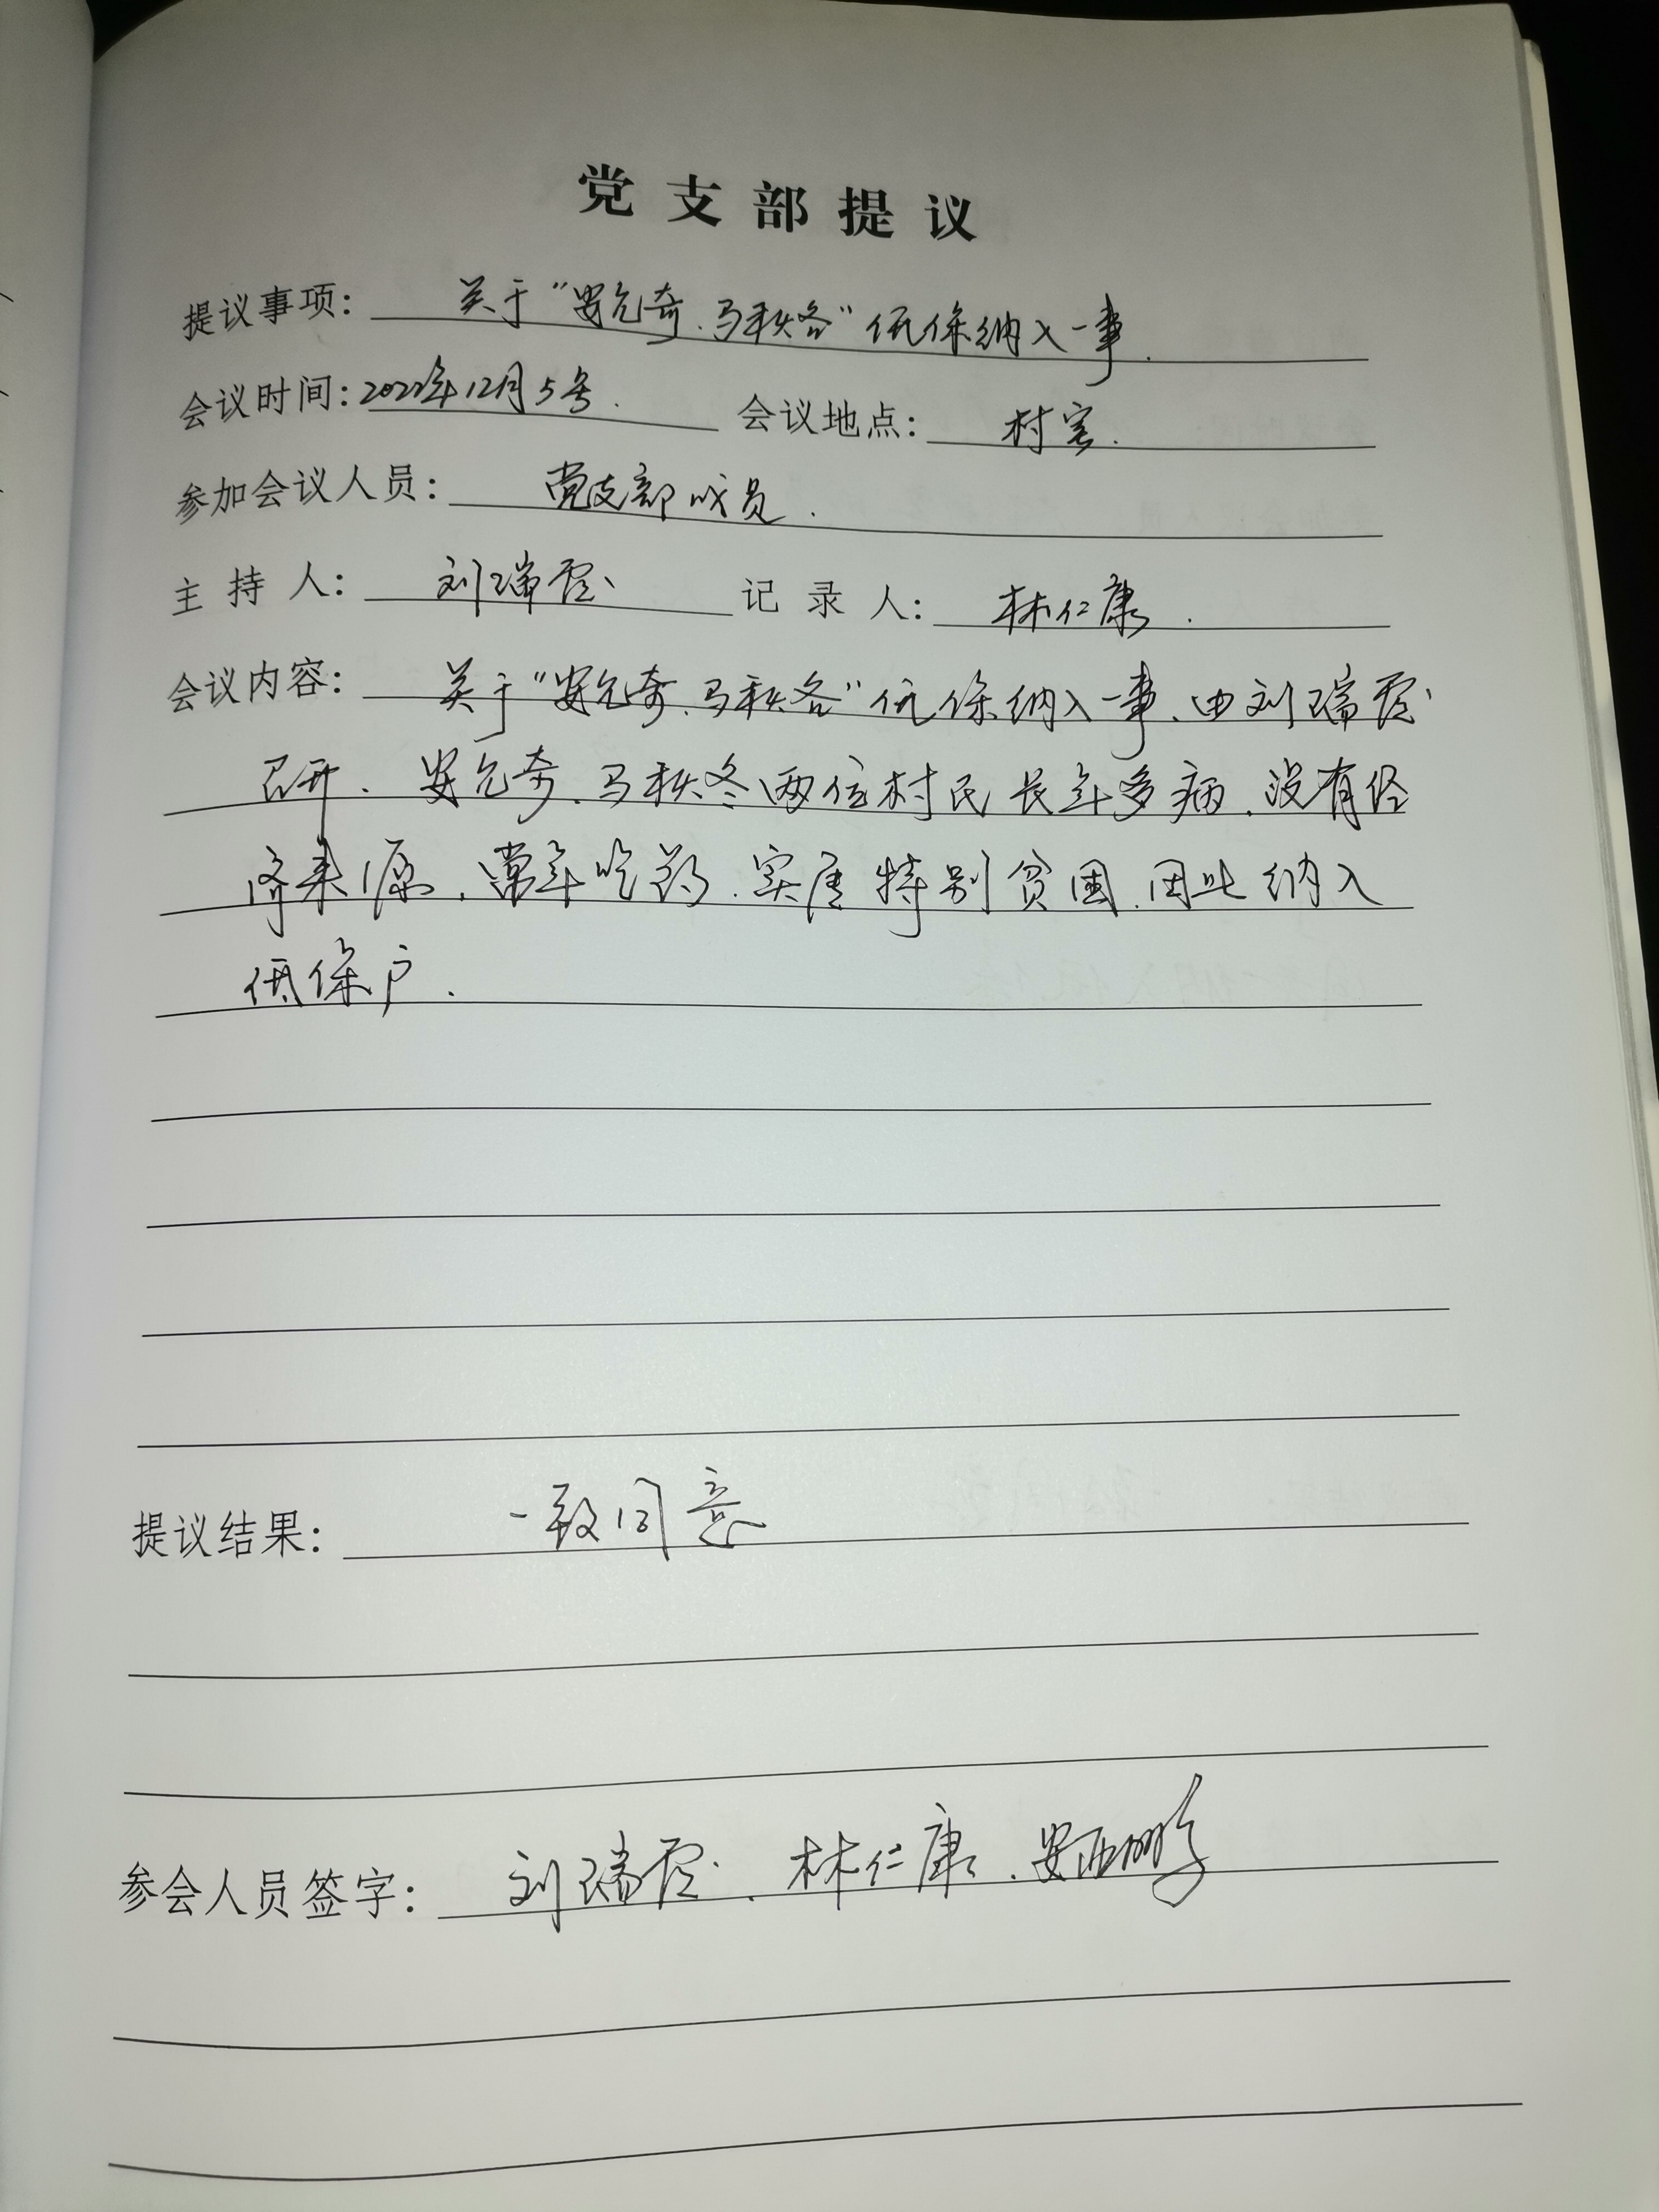 党支部提议
提议事项: 关于"安允奇、马秋冬"低保纳入一事.
会议时间: 2022年12月5号. 会议地点: 村室.
参加会议人员: 党支部成员.
主持人: 刘瑞霞 记录人: 林仁康.
会议内容: 关于"安允奇、马秋冬"低保纳入一事、由刘瑞霞
召开. 安允奇、马秋冬两位村民长年多病、没有经
济来源、常年吃药、实属特别贫困、因此纳入
低保户.
提议结果: 一致同意
参会人员签字: 刘瑞霞、林仁康、安鹏